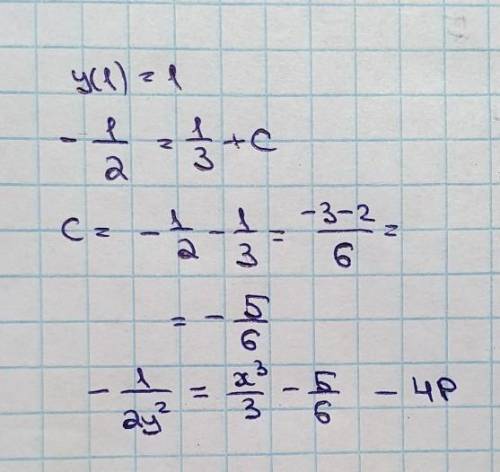 y(1) = 1
- 1/2 = 1/3 + C
C = - 1/2 - 1/3 = (-3-2)/6 =
= - 5/6
- 1/(2y²) = x³/3 - 5/6 - ЧР